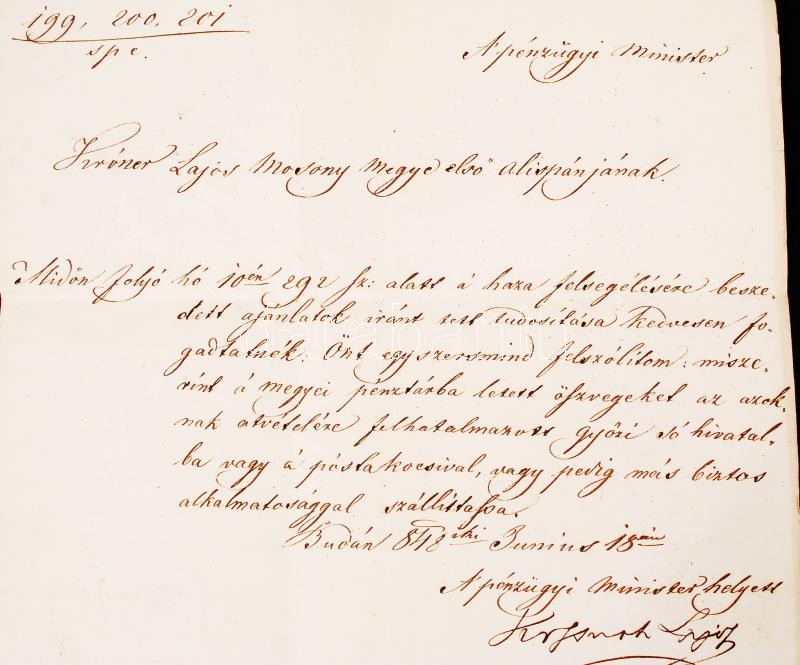 199, 200, 201
spe.
A' pénzügyi Minister
Króner Lajos Mosony Megye első alispánjának.
Midőn folyó hó 10én 292 sz: alatt á haza felsegélésére besze-
dett ajánlatok iránt tett tudosítása kedvesen fo-
gadtatnék: Önt egyszersmind felszólítom: misze-
rint á megyei pénztárba letett öszvegeket az azok-
nak átvételére felhatalmazott győri só hivatal-
ba vagy á póstakocsival, vagy pedig más biztos
alkalmatosággal szállíttassa.
Budán 848iki Junius 18án
A' pénzügyi Minister helyett
Kossuth Lajos